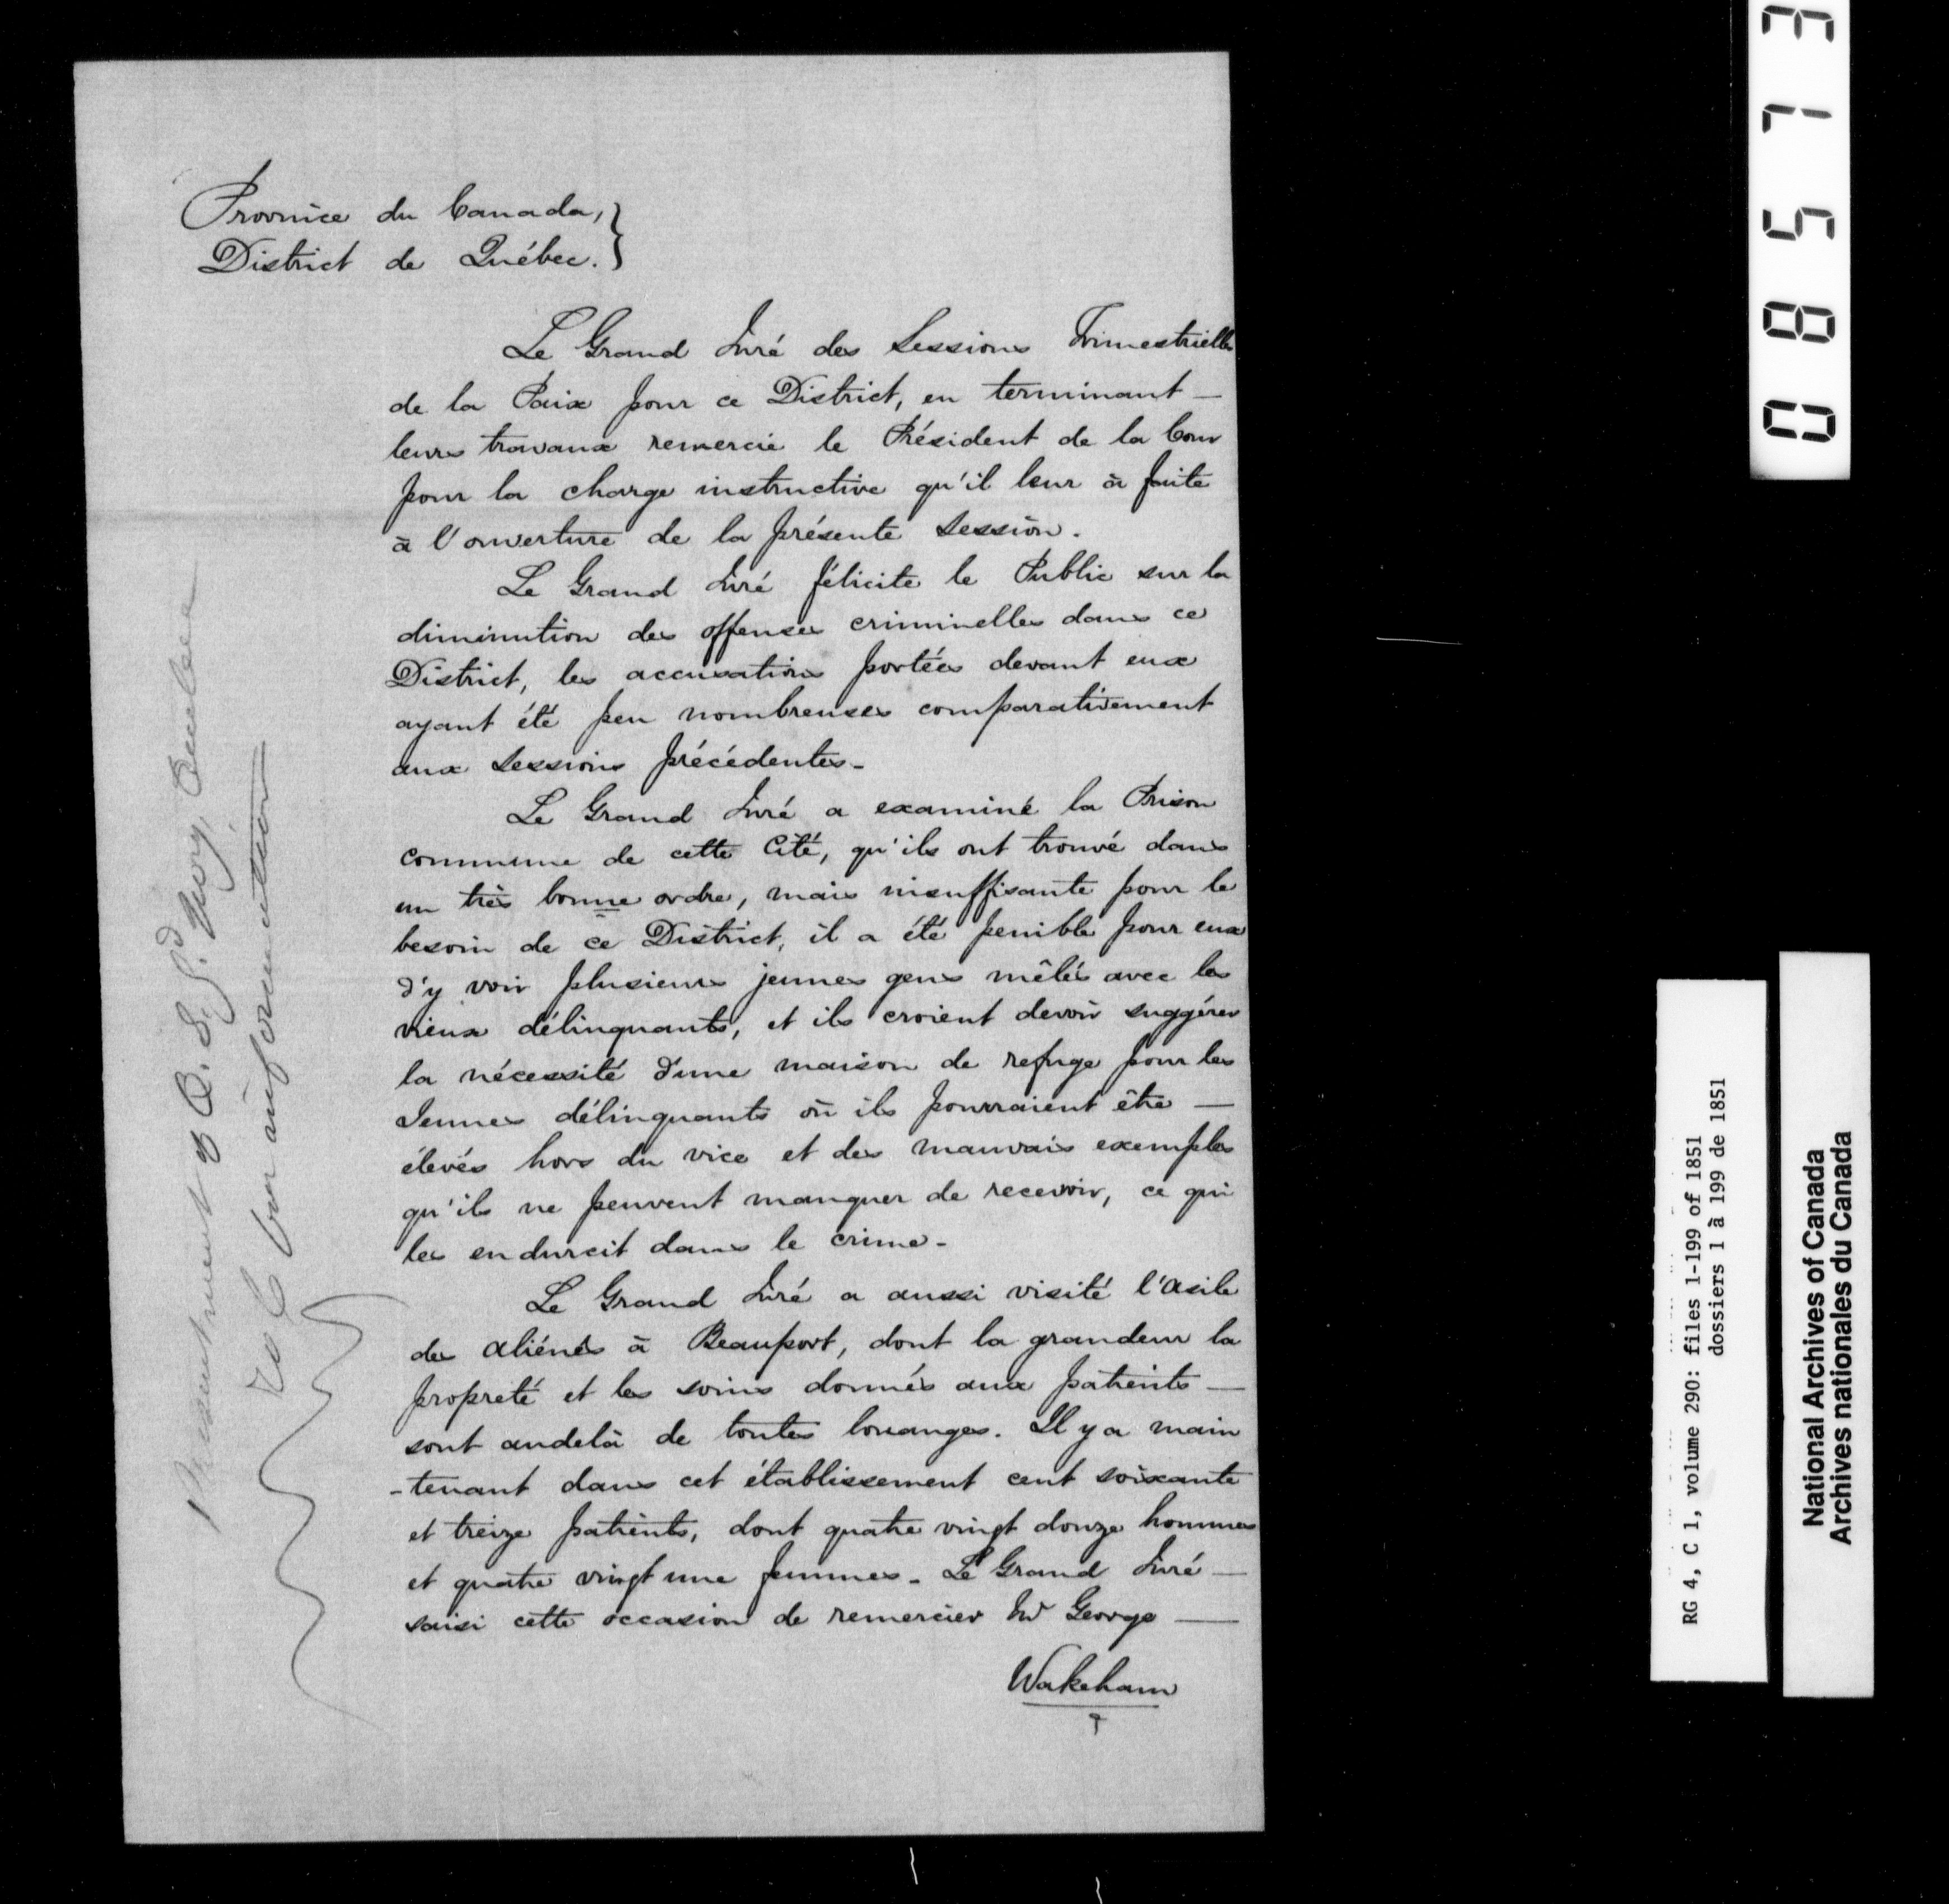 Province du Canada,
District de Québec.
Le Grand Juré des Sessions Trimestrielles
de la Paix pour ce District, en terminant —
leurs travaux remercie le Président de la Cour
pour la charge instructive qu'il leur à faite
à l'ouverture de la présente Session.
Le Grand Juré félicite le Public sur la
diminution des offenses criminelles dans ce
District, les accusations portées devant eux
ayant été peu nombreuses comparativement
aux Sessions précédentes -
Le Grand Juré a examiné la Prison
commune de cette Cité, qu'ils ont trouvé dans
un très bonne ordre, mais insuffisante pour le
besoin de ce District, il a été penible pour eux
d'y voir plusieurs jeunes gens mêlés avec les
vieux délinquants, et ils croient devoir suggérer
la nécessité d'une maison de refuge pour les
Jeunes délinquants où ils pourraient être —
élevés hors du vice et des mauvais exemples
qu'ils ne peuvent manquer de recevoir, ce qui
les endurcit dans le crime -
Le Grand Juré a aussi visité l'asile
des aliénés à Beauport, dont la grandeur la
propreté et les soins donnés aux patients —
sont audelà de toutes louanges. Il y a main
-tenant dans cet établissement cent soixante
et treize patients, dont quatre vingt douze hommes
et quatre vingt une femmes - Le Grand Juré —
saisi cette occasion de remercier Mr George —
Wakeham
Q. S.
for information
08573
RG 4, C 1, volume 290: files 1-199 of 1851
dossiers 1 à 199 de 1851
National Archives of Canada
Archives nationales du Canada